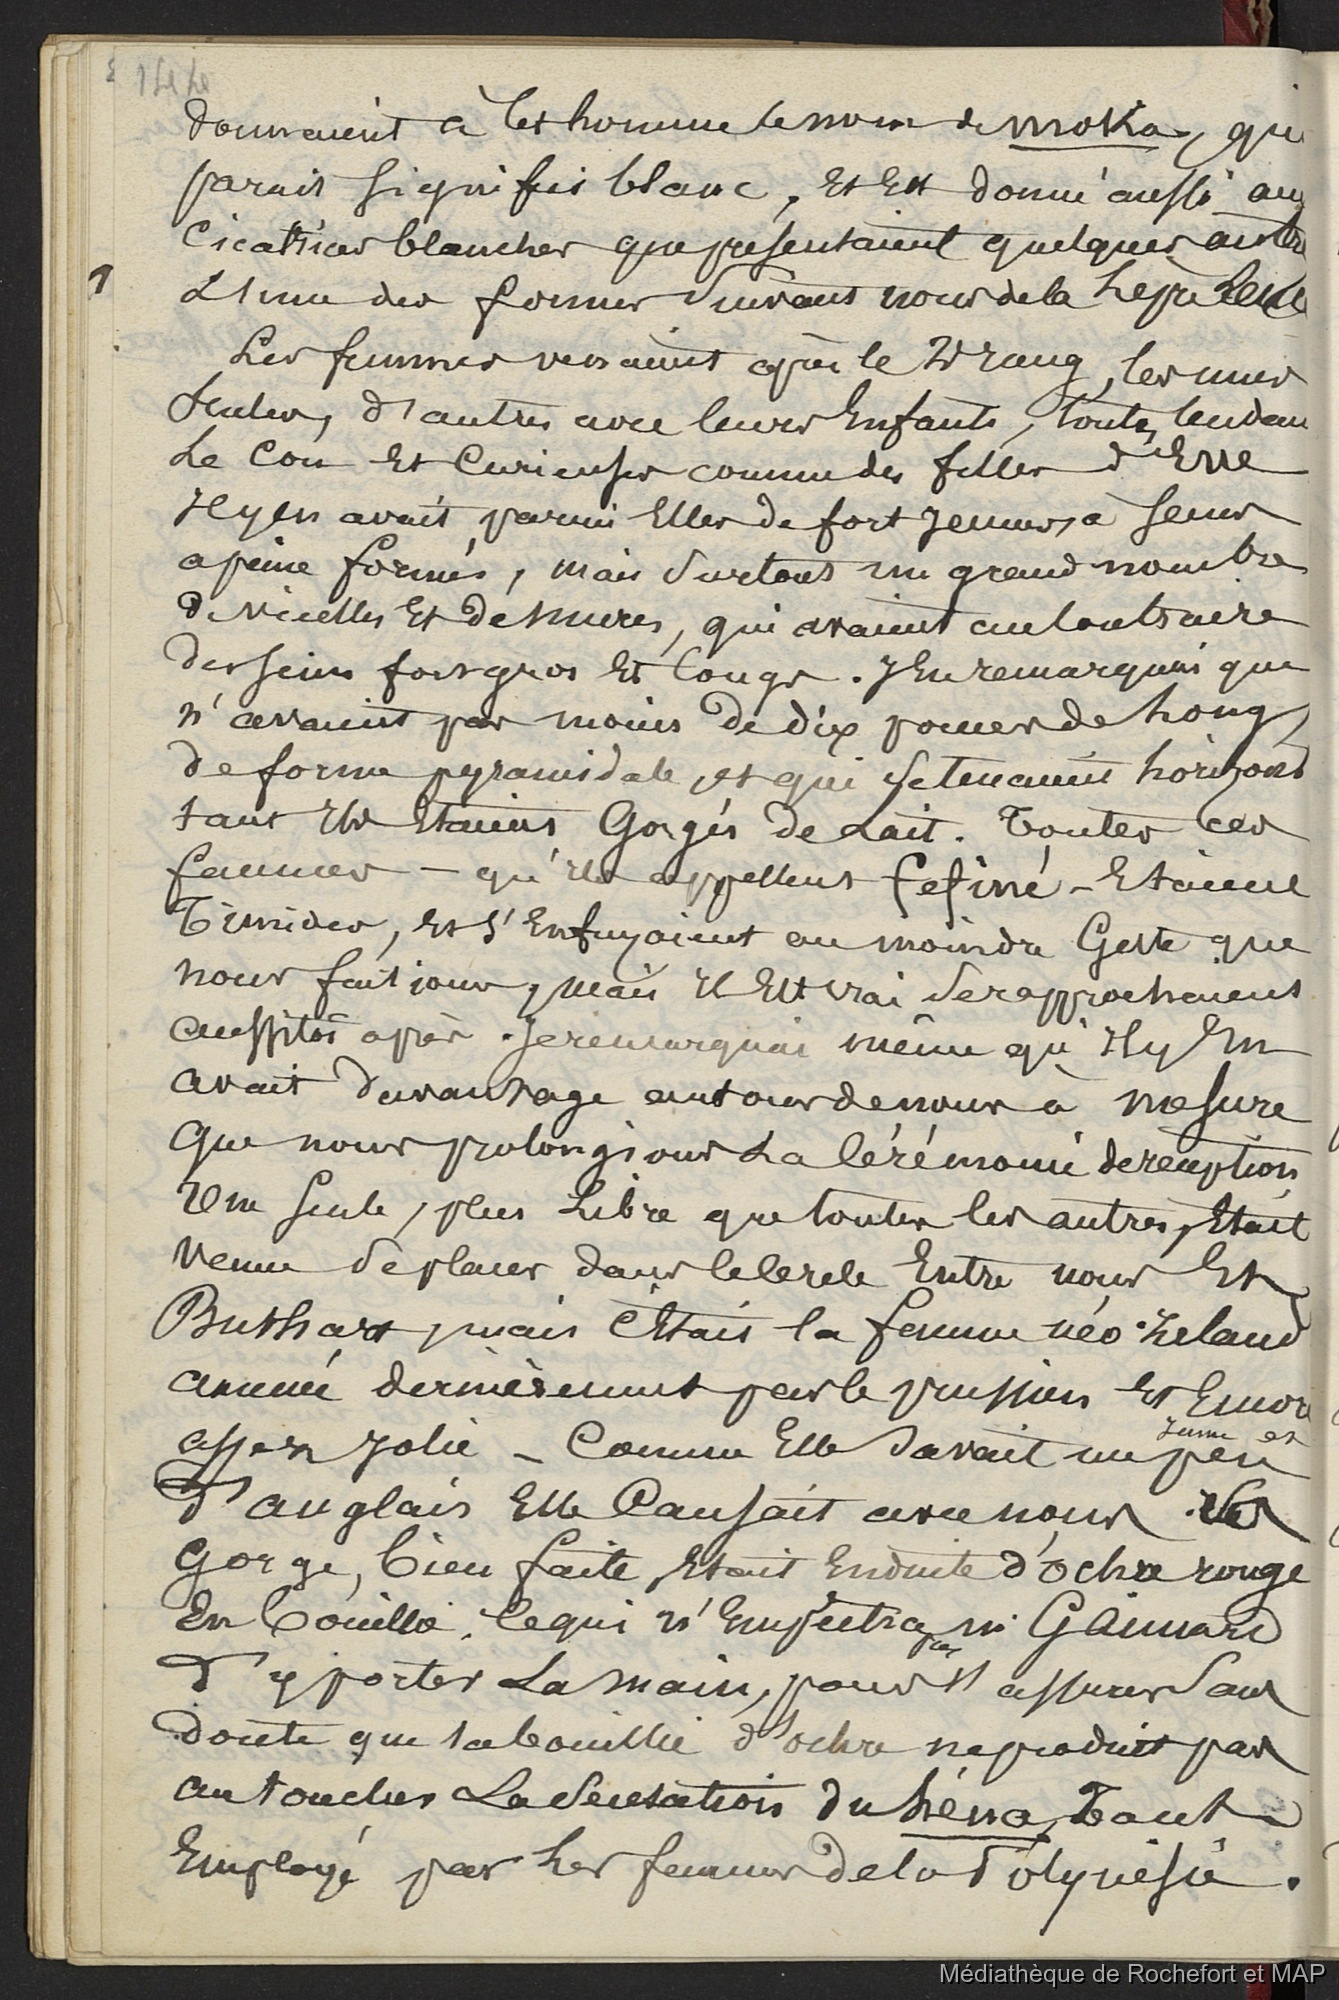 donnaient à cet homme le nom de moka, qui
parait signifier blanc, Et Est donné aussi aux
Cicatrices blanches que présentaient quelques autres
L'une des formes suivant nous de la Lèpre
Les femmes venaient après le 2e rang, les unes
seules, d'autres avec leurs Enfants, toutes tendant
Le Cou Et Curieuses comme des filles d'Eve
Il y en avait parmi Elles de fort jeunes, à seins
a peine formés, mais surtout un grand nombre
de vieilles Et de mures, qui avaient au Contraire
des seins fort gros Et longs. J'en remarquais qui
n'avaient pas moins de dix pouces de long,
de forme pyramidale, et qui se tenaient horizont
tant Ils Etaient Gorgés de Lait. Toutes ces
femmes - qu'ils appellent fefiné - Etaient
Timides, Et s'Enfuyaient au moindre Geste que
nous faisions, mais Il Est vrai se rapprochaient
aussitôt après. Je remarquai même qu'Il y En
avait davantage autour de nous à mesure
Que nous prolongions La Cérémonie de réception
Une seule, plus Libre que toutes les autres, Etait
venue se placer dans le Cercle Entre nous Et
Buthart, mais C'Etait la femme néo-zeland
amenée dernièrement par le prussien Et Encore
jeune et
assez Jolie - Comme Elle savait un peu
d'anglais Elle Causait avec nous. Sa
Gorge, bien faite, Etait Enduite d'ochre rouge
En bouillie, ce qui n'Empêcha pas Mr GAimard
d'y porter La main, pour s'assurer sans
doute que sa bouillie d'ochre ne produit pas
au toucher La sensation du héna, Tant
Employé par Les femmes de la Polynésie.
Médiathèque de Rochefort et MAP